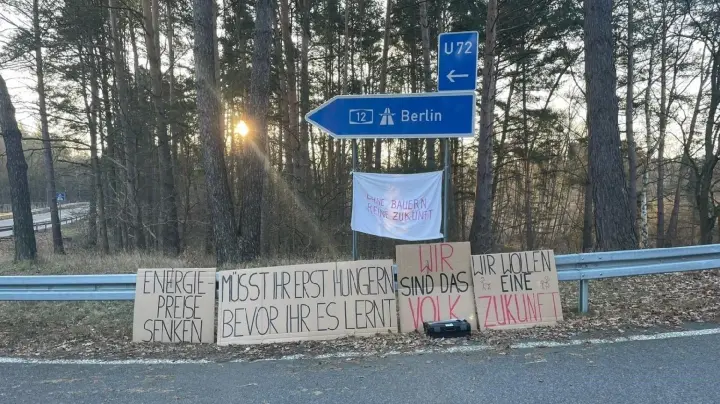 U 72
12 Berlin
OHNE BAUERN
KEINE ZUKUNFT
ENERGIE-
PREISE
SENKEN
MÜSST IHR ERST HUNGERN
BEVOR IHR ES LERNT
WIR
SIND DAS
VOLK
WIR WOLLEN
EINE
ZUKUNFT